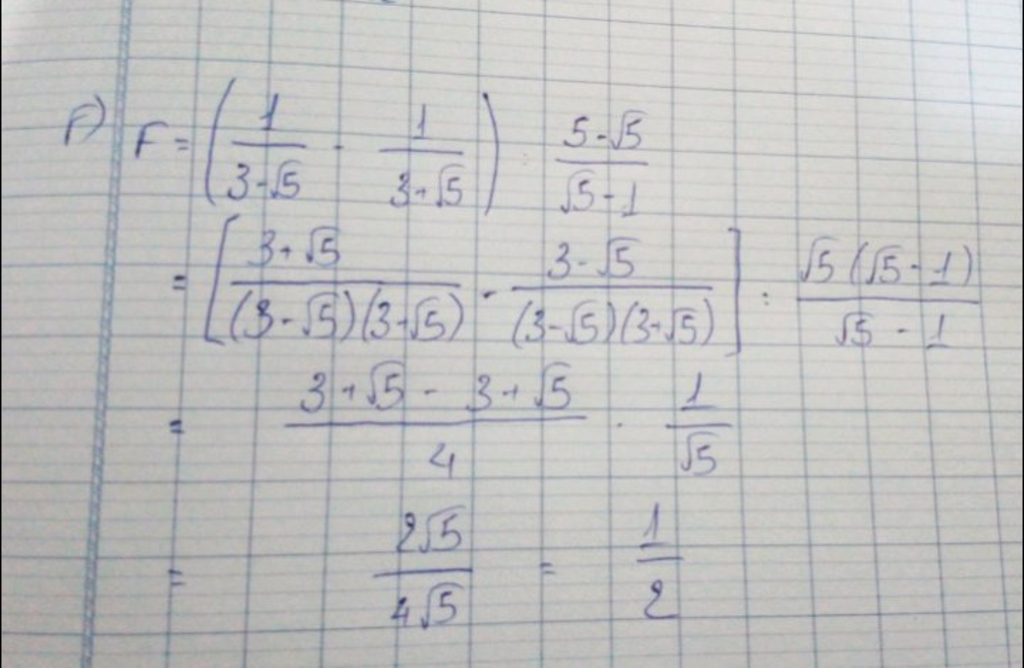 F) F = (1/(3-√5) - 1/(3+√5)) : (5-√5)/(√5-1)
= [(3+√5)/((3-√5)(3+√5)) - (3-√5)/((3-√5)(3+√5))] : √5(√5-1)/(√5-1)
= (3+√5-3+√5)/4 . 1/√5
= 2√5/4√5 = 1/2